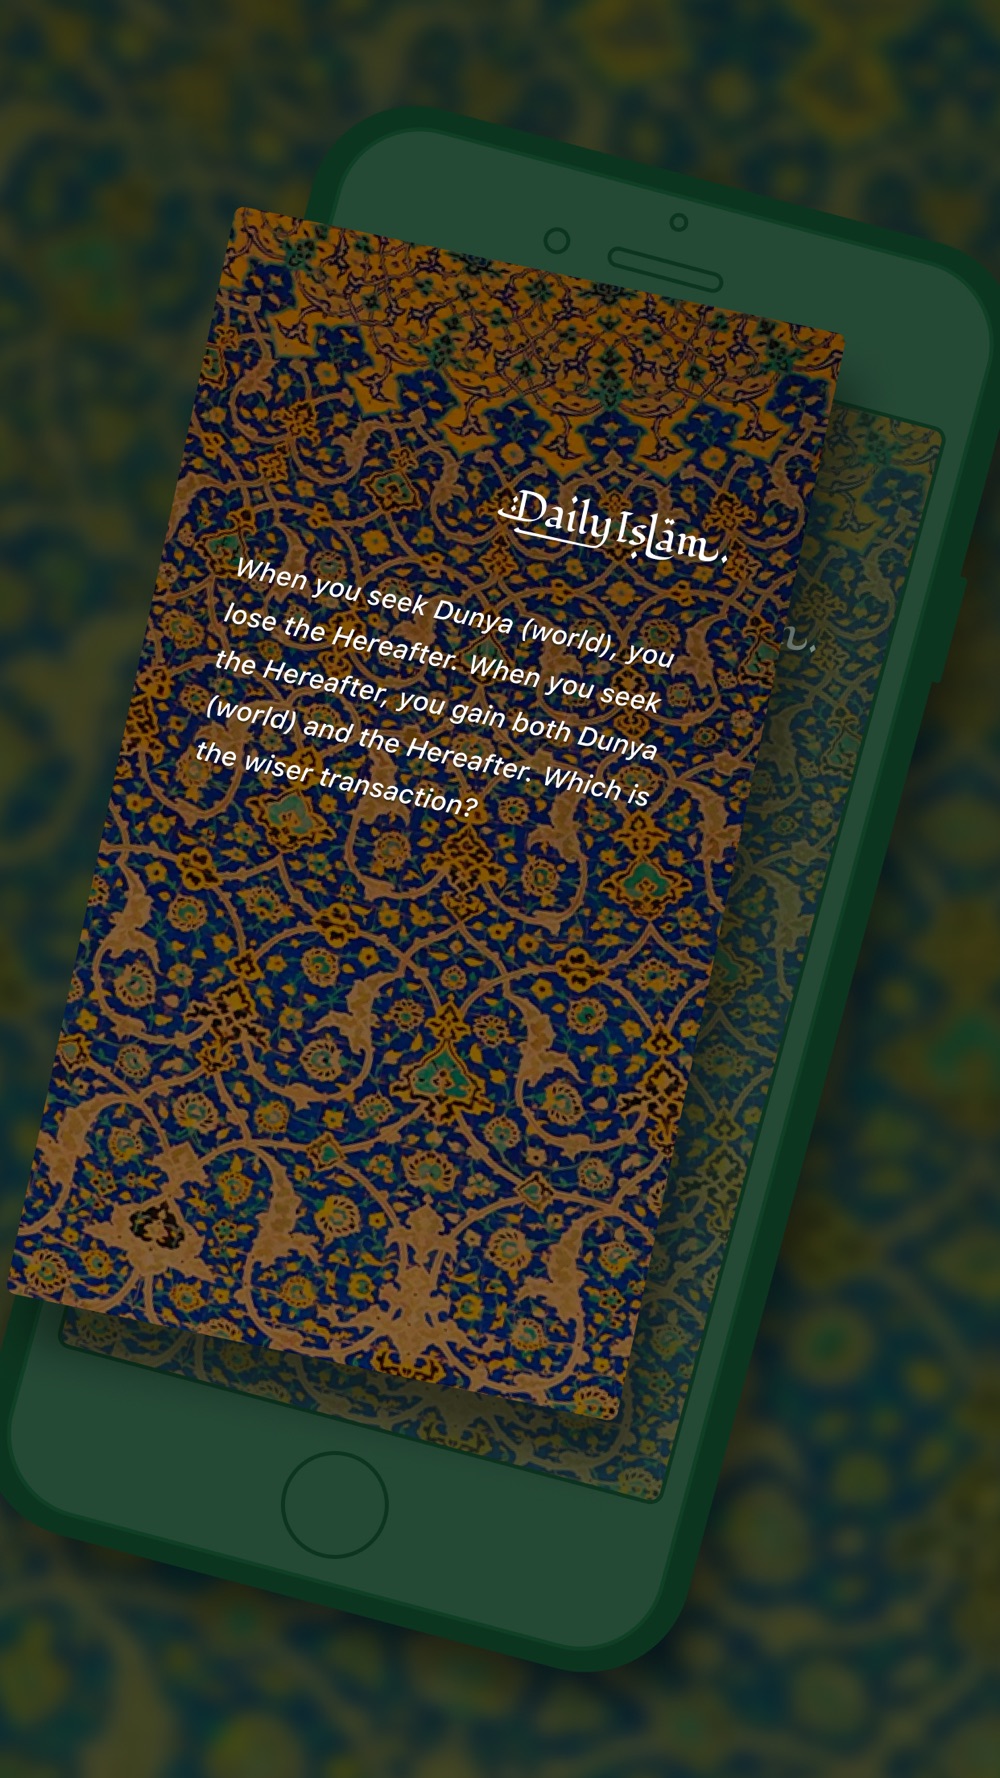 Daily Islam.
When you seek Dunya (world), you
lose the Hereafter. When you seek
the Hereafter, you gain both Dunya
(world) and the Hereafter. Which is
the wiser transaction?